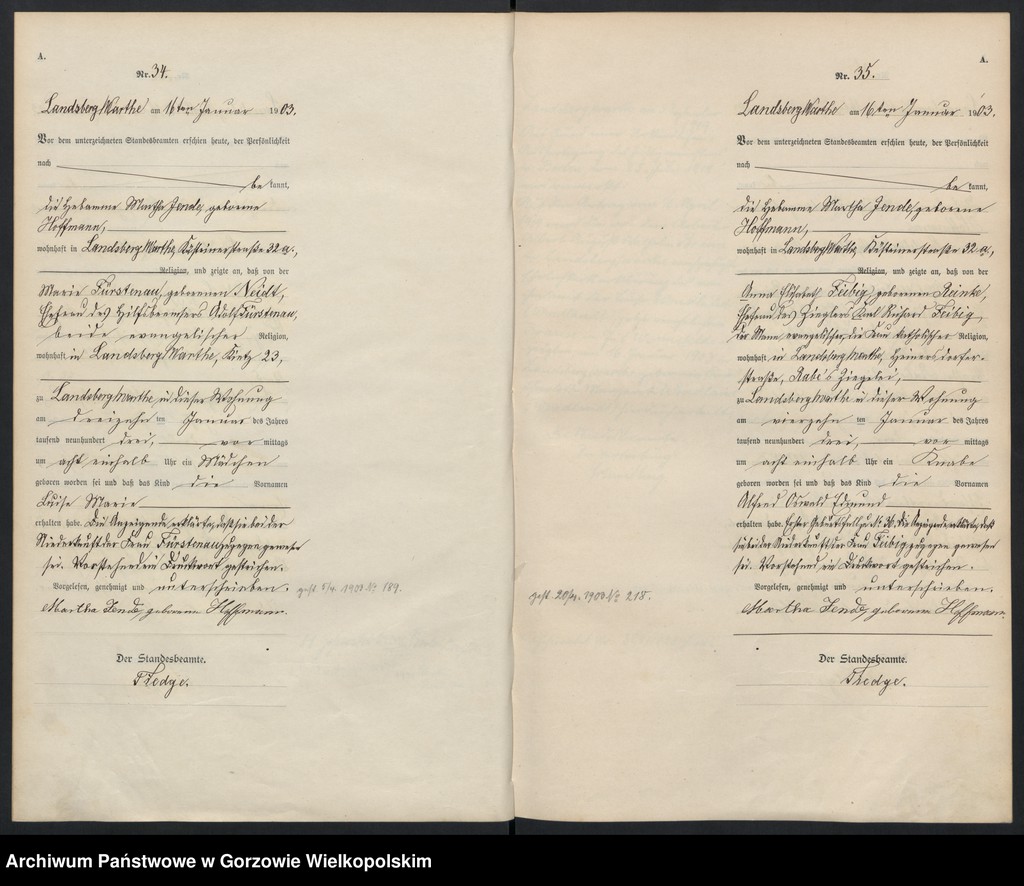 A.
Nr. 34.
Landsberg Warthe am 16ten Januar 1903.
Vor dem unterzeichneten Standesbeamten erschien heute, der Persönlichkeit
nach
be kannt,
die Hebamme Martha Jende, geborene
Hoffmann,
wohnhaft in Landsberg Warthe, Küstrinerstraße 32a.,
Religion, und zeigte an, daß von der
Marie Fürstenau, geborenen Neidt,
Ehefrau des Hilfsbremsers Adolf Fürstenau,
beide evangelischer Religion,
wohnhaft in Landsberg Warthe, Kietz 23,
zu Landsberg Warthe in dieser Wohnung
am dreizehn ten Januar des Jahres
tausend neunhundert drei, vor mittags
um acht einhalb Uhr ein Mädchen
geboren worden sei und daß das Kind die Vornamen
Luise Marie
erhalten habe. Die Anzeigende erklärte, daß sie bei der
Niederkunft der Frau Fürstenau zugegen gewesen
sei. Vorstehend ein Druckwort gestrichen.
Vorgelesen, genehmigt und unterschrieben.
Martha Jende, geborene Hoffmann.
Der Standesbeamte.
gest. 1903 № 189.
A.
Nr. 35.
Landsberg Warthe am 16ten Januar 1903.
Vor dem unterzeichneten Standesbeamten erschien heute, der Persönlichkeit
nach
be kannt,
die Hebamme Martha Jende, geborene
Hoffmann,
wohnhaft in Landsberg Warthe, Küstrinerstraße 32a.,
Religion, und zeigte an, daß von der
Anna Elisabeth Feibig, geborenen Reinke,
Ehefrau des Zieglers Karl Richard Feibig,
der Mann evangelischer, die Frau katholischer Religion,
wohnhaft in Landsberg Warthe, Heinersdorfer-
straße, Rabe's Ziegelei,
zu Landsberg Warthe in dieser Wohnung
am vierzehn ten Januar des Jahres
tausend neunhundert drei, vor mittags
um acht einhalb Uhr ein Knabe
geboren worden sei und daß das Kind die Vornamen
Alfred Oswald Edmund
erhalten habe. Erster Geburtsfall zu № 36. Die Anzeigende erklärte, daß
sie bei der Niederkunft der Frau Feibig zugegen gewesen
sei. Vorstehend ein Druckwort gestrichen.
Vorgelesen, genehmigt und unterschrieben.
Martha Jende, geborene Hoffmann.
gest. 1903 № 218.
Der Standesbeamte.
Archiwum Państwowe w Gorzowie Wielkopolskim